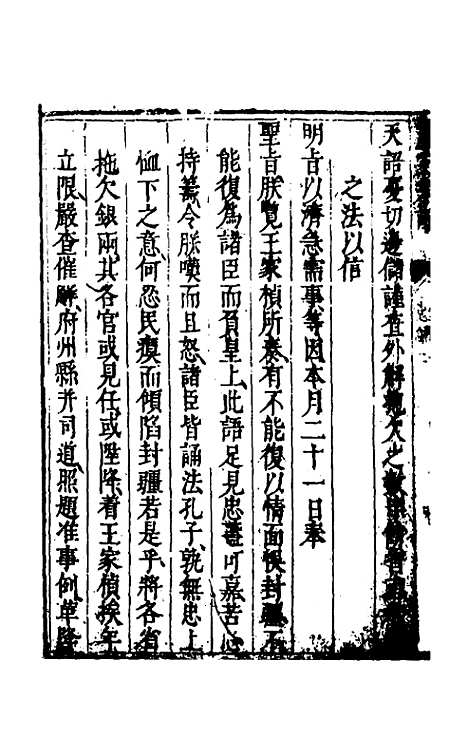 天語憂切邊儲謹查外解拖欠之數
之法以信
明旨以濟急需事等因本月二十一日奉
聖旨朕覽王家楨所奏有不能復以情面悞封疆不
能復爲諸臣而負皇上此語足見忠藎可嘉苦心
持籌令朕嘆而且怒諸臣皆誦法孔子孰無忠上
恤下之意何忍民瘼而傾陷封疆若是乎將各省
拖欠銀兩其各官或見任或陞降着王家楨挨年
立限嚴查催解府州縣并司道照題准事例革降